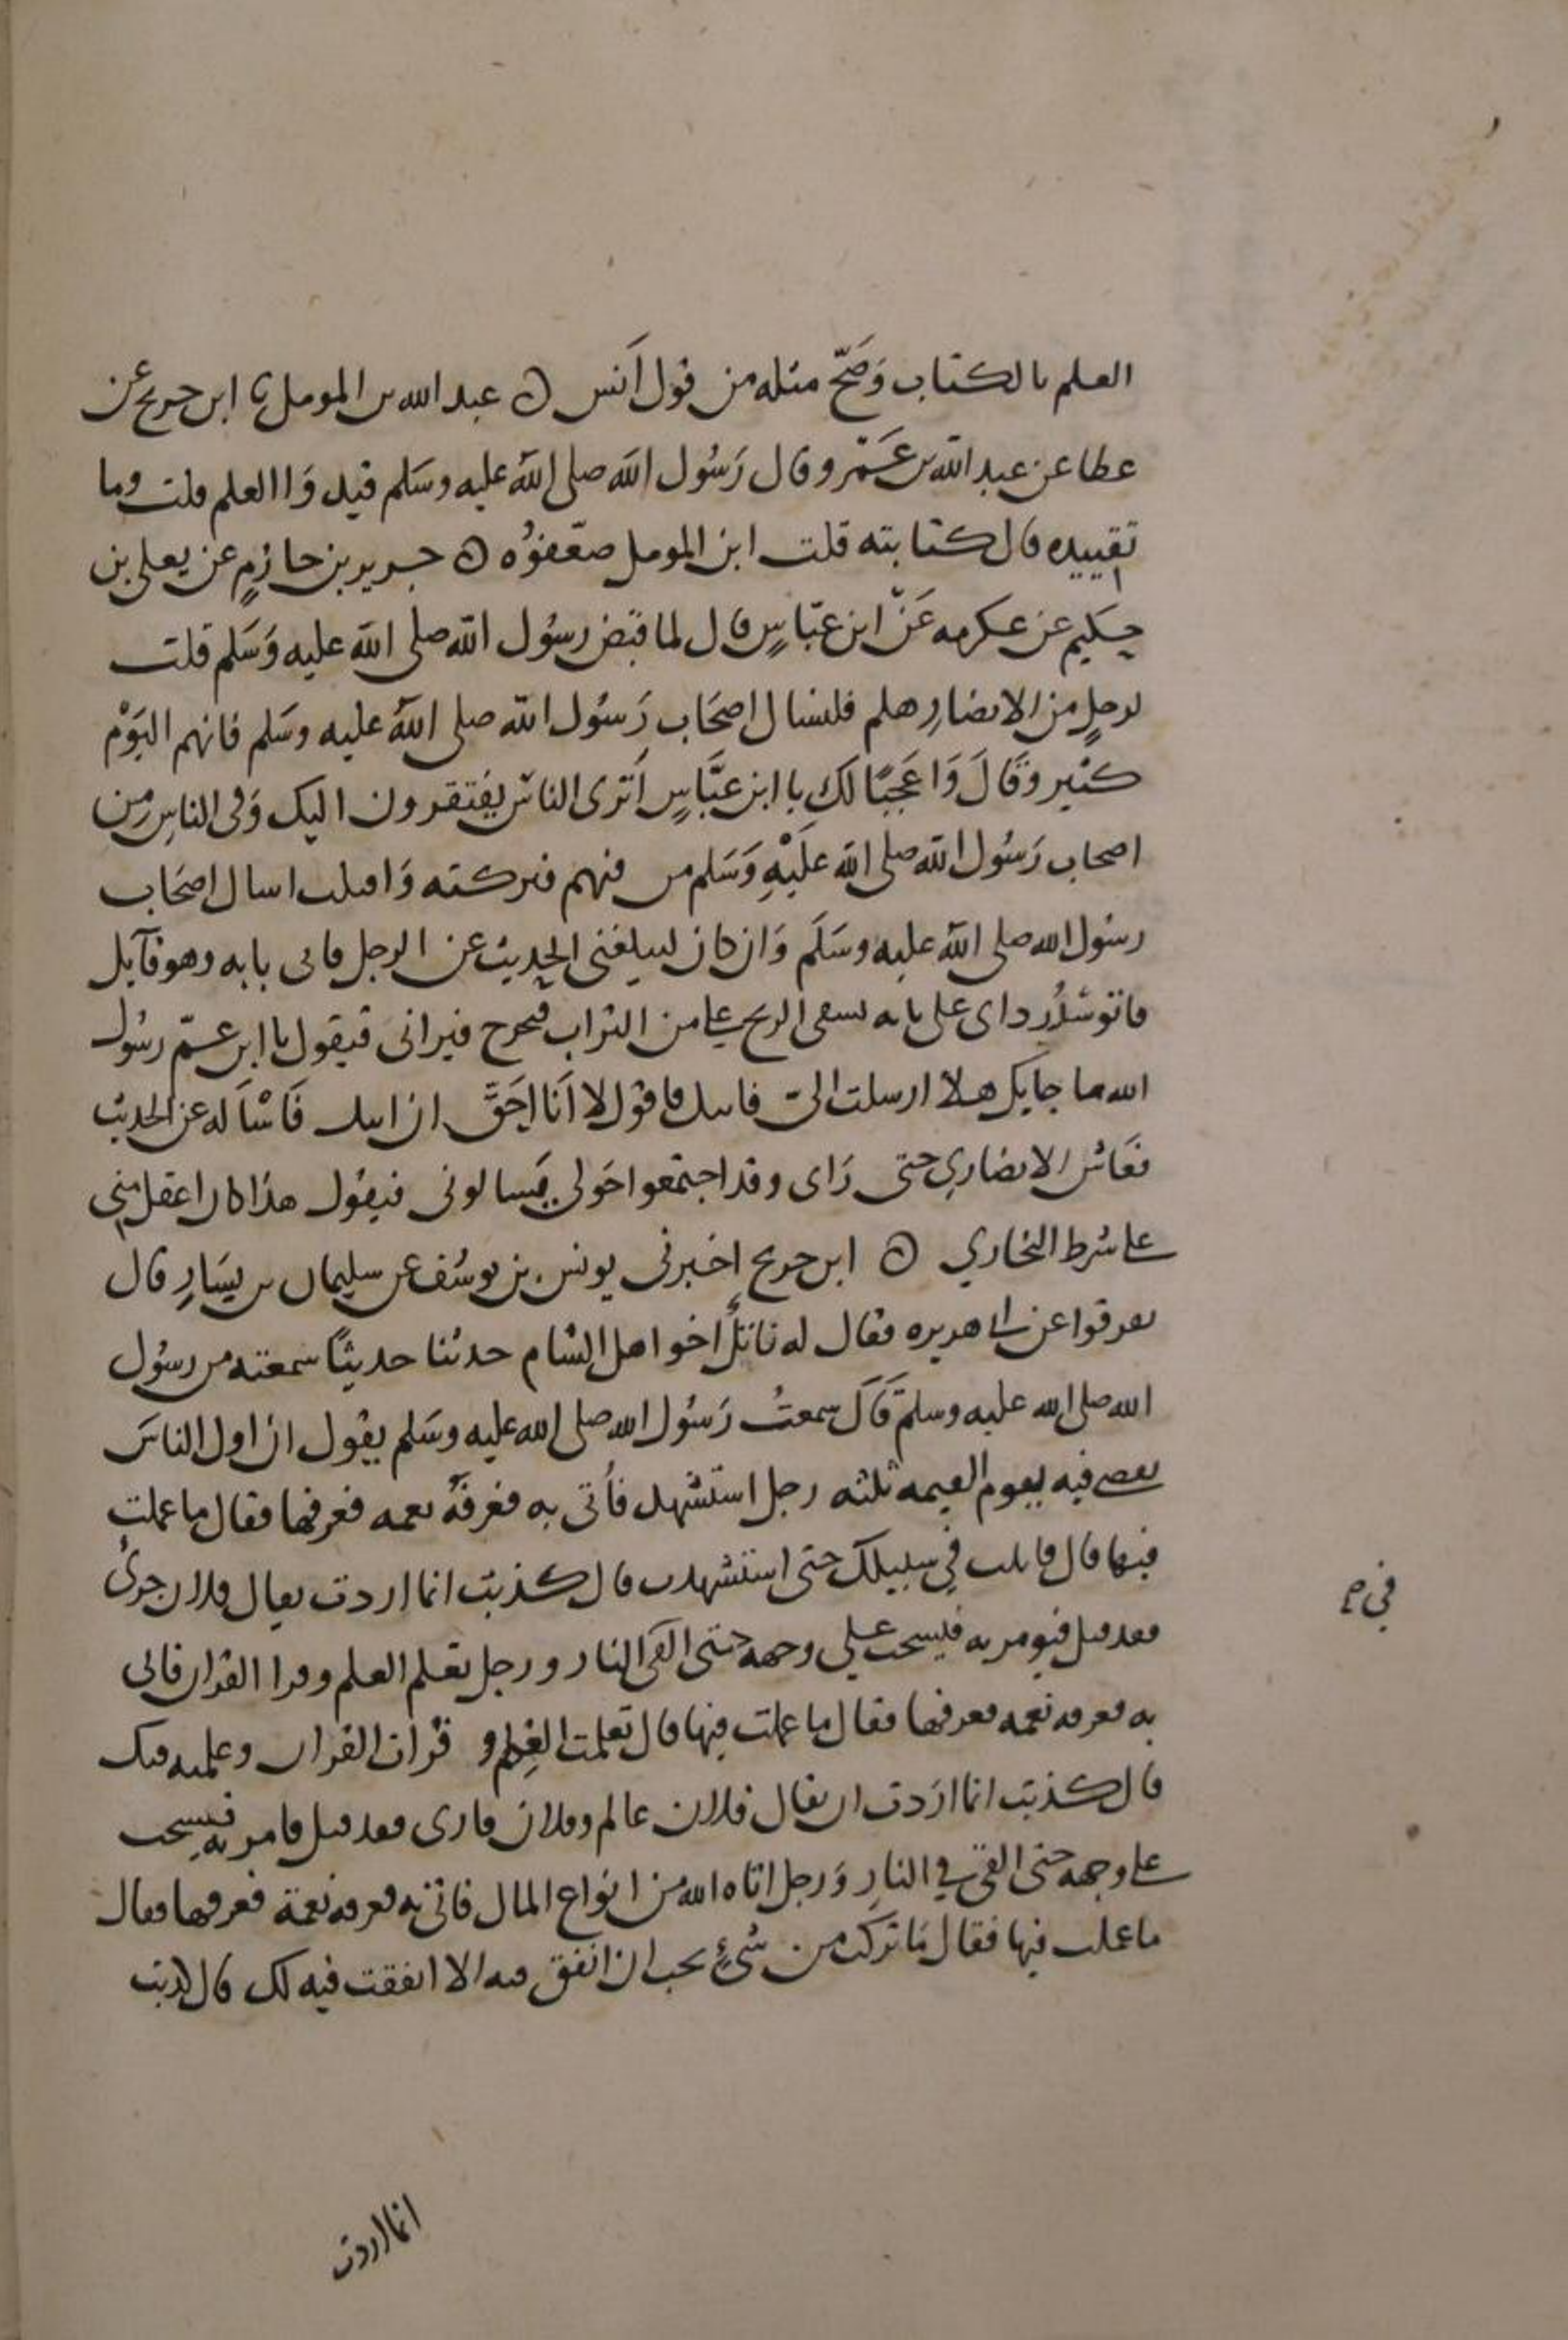 العلم بالكتاب وَصَحّ مثله من قول اَنس ه عبد الله بن المومل نا ابن جريج عن
عطا عن عبد الله بن عَمْرو قال رَسُول الله صلى الله عليه وسَلم قيدوَا العلم قلت وما
تقييده قال كتابته قلت ابن المومل ضعّفوُه ه جرير بن حازمٍ عن يعلى بن
حكيم عن عكرمه عَنْ ابن عبّاسٍ قال لما قبَض رسوُل الله صلى الله عليه وَسَلم قلت
لرجلٍ من الانصارِ هلم فلنسال اصحَاب رَسوُل الله صلى الله عليه وسَلم فانهم اليَوْم
كثير وقَالَ وَا عَجَبًا لكِ يا ابن عبَّاسٍ اَترى الناسَ يفتقرون اليك وَفى الناسِ مِن
اصحاب رَسُول الله صلى الله عَلَيْهِ وَسَلم من فيهم فتركته وَاقبلت اسال اصحَاب
رسُول الله صلى الله عليه وسَلَم وَان كان ليبلغنى الحديث عن الرجل فاتى بابه وهو قآيل
فاتوسّدُ رداى على بابه تسفى الريح على من التراب فيخرج فيرانى فيقول يا ابن عمّ رسُول
الله ما جايك هلا ارسلت الىّ فاتيك فاقول لا اَنا احَقَّ ان اتيك فَاسْاَله عن الحديث
فعَاش الانصارى حتى رَاى وقد اجتمعوا حَولى يَسالونى فيقول هذا كان اعقل منى
على شرط البخاري ه ابن جريج اخبرنى يونس بن يوسُف عن سليمان بن يسَارٍ قال
تفرقوا عن ابى هريره فقال له ناتلٌ اخو اهل الشام حدثنا حديثًا سمعته من رسوُل
الله صلى الله عليه وسلمَ قَالَ سمعتُ رَسُول الله صلى الله عليه وسَلم يقول ان اول الناسَ
يقضى فيه يوم القيمه ثلثه رجل استشهد فاُتى به فعرفهُ نعمه فعرفها فقال ما عملت
فيها قال قاتلت في سبيلك حتى استشهدت قال كذبت انما اردت يقال فلان جرىٌ
فقد قيل فيومر به فيسحب على وجهه حتى القى النار ورجل تعلم العلم وقرا القران فاتى
به فعرفه نعمه فعرفها فقال ما عملت فيها قال تعلمت العِلم و قرَات القران وعلمته فيك
قال كذبت انما ارَدت ان يقال فلان عالم وفلان قارى فقد قيل فامر به فيسحب
على وجهه حتى القى في النارِ وَرجل اتاه الله من انواع المال فاتى به فعرفه نعمة فعرفها فقال
ما عملت فيها فقال مَا تركت من شىءٍ يحب ان انفق فيه الا انفقت فيه لك قال كذبت
في م
انما اردت